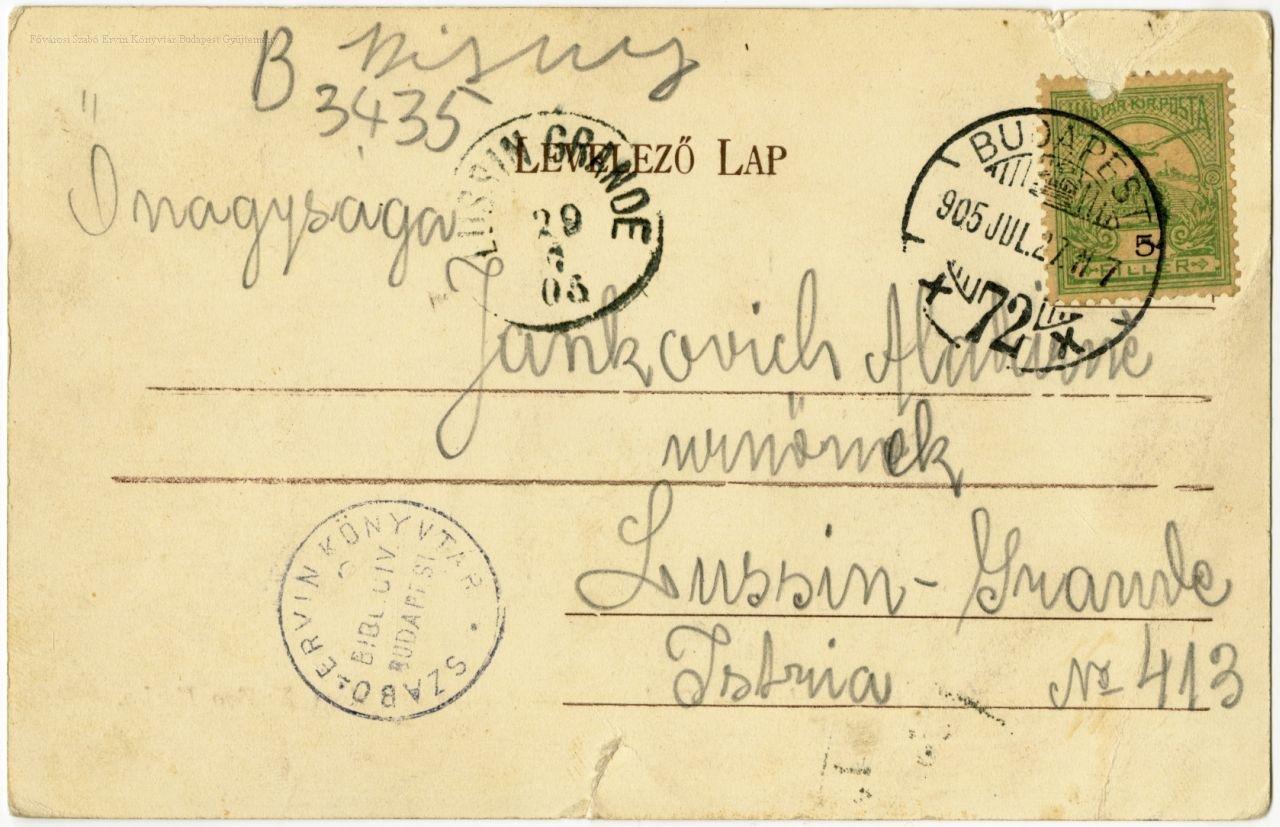 Fővárosi Szabó Ervin Könyvtár Budapest Gyűjtemény
B
3435
LEVELEZŐ LAP
MAGYAR·KIR·POSTA
5
FILLÉR
BUDAPEST
905 JUL. 27
72
LUSSIN GRANDE
29
7
05
Őnagysága
Jankovich Aladárné
urnőnek
Lussin-Grande
Istria № 413
SZABÓ ERVIN KÖNYVTÁR
BIBL. CIV.
BUDAPEST